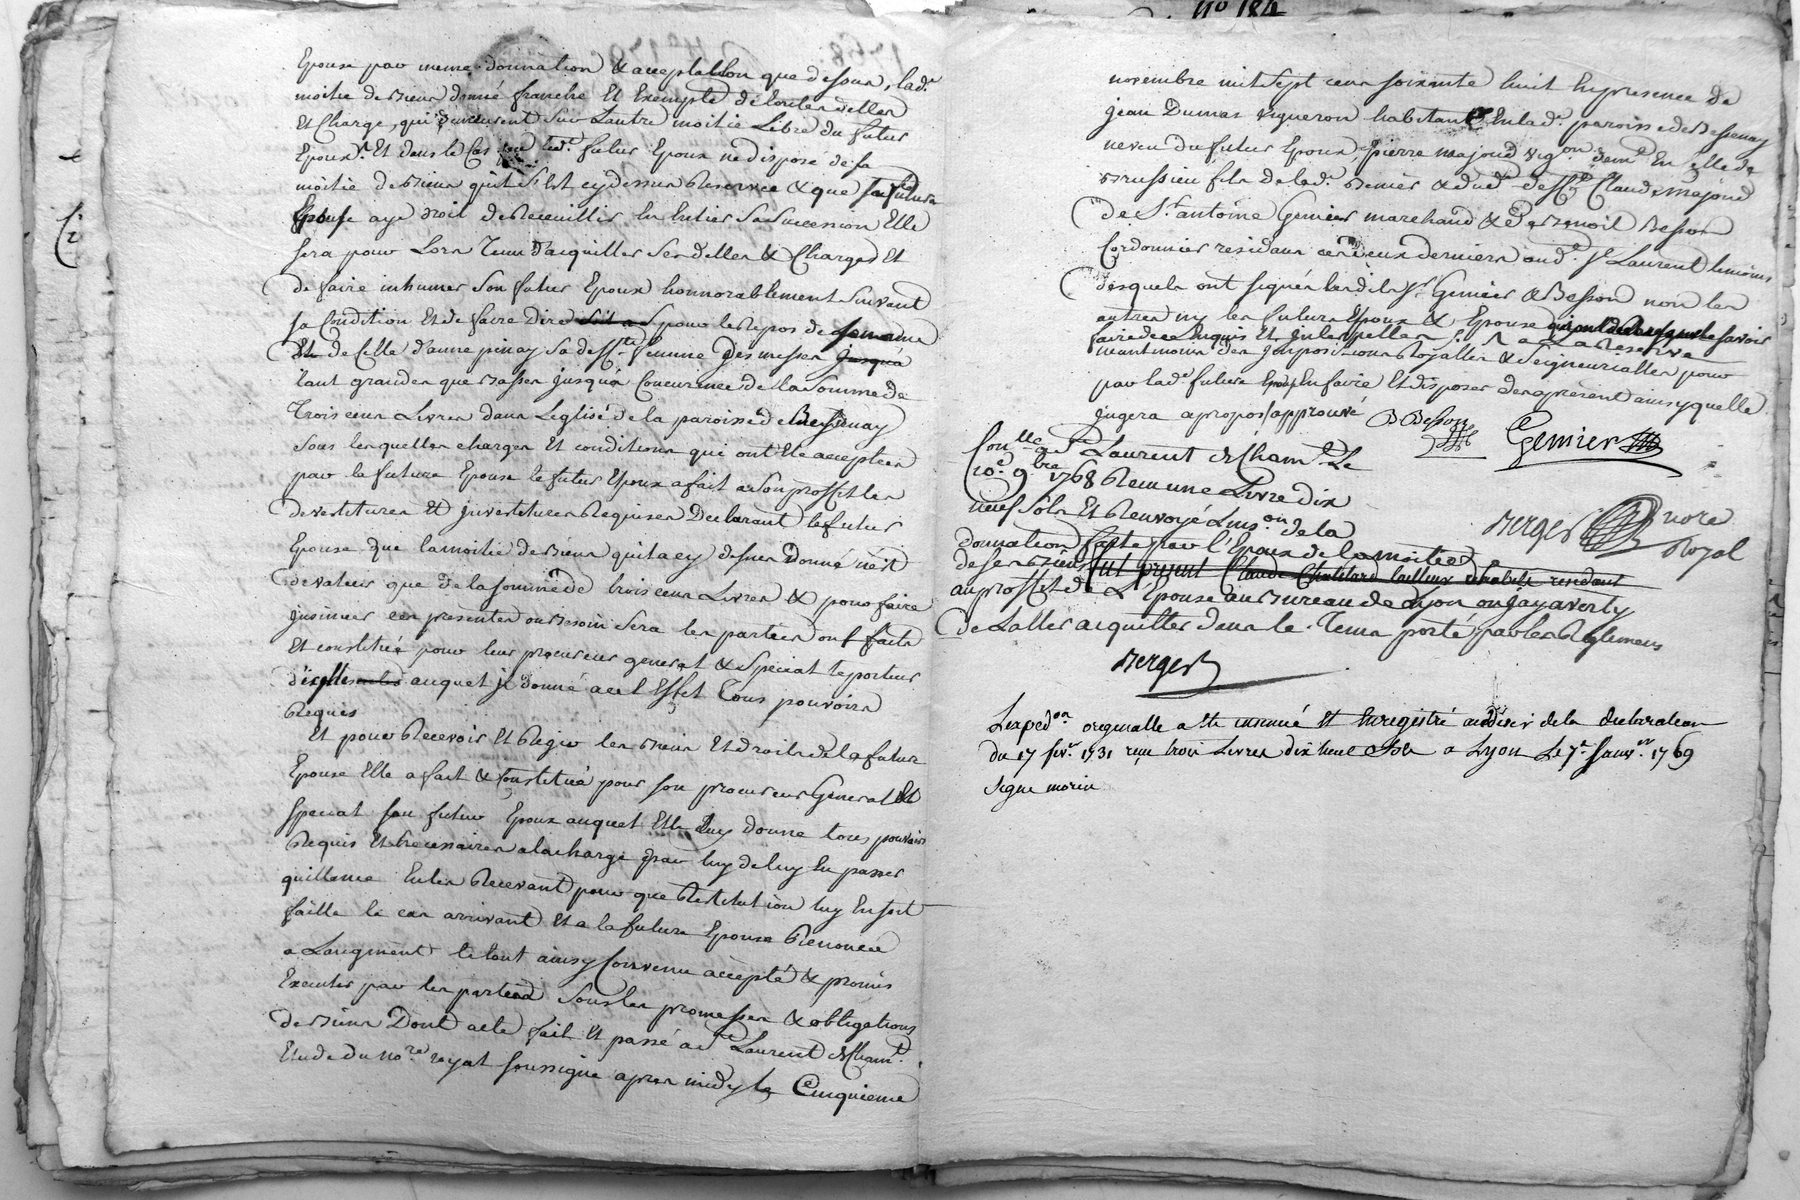 Epouse par meme donnation & acceptation que dessus, lad.e
moitié de biens donné franche Et Exempte de toutes dettes
Et Charge, qui demeurent sur Lautre moitié Libre du futur
Epoux Et dans le Cas led.t futur Epoux ne dispose de sa
moitié de biens quil s'est cy dessus Reservée & que sa future
Epouse aye droit de Recueillir En Entier Sa Succession Elle
sera pour Lors Tenu d'acquitter Ses dettes & Charges Et
de faire inhumer Son futur Epoux honnorablement Suivant
sa Condition Et de faire dire pour le Repos de son ame
Et de Celle d'anne pinay Sa deff.te femme des messes
tant grandes que basses jusqu'a Concurrence de la Somme de
Trois cens Livres dans Leglise de la paroisse de Bessenay
Sous lesquelles charges Et conditions qui ont Eté acceptées
par la future Epouse le futur Epoux a fait a Son proffit les
devestitures Et investitures Requises Declarant le futur
Epouse que la moitié de biens quil a cy dessus Donné n'est
de valeur que de la somme de trois cens Livres & pour faire
insinuer ces presentes ou besoin Sera les parties ont fait
Et constitué pour leur procureur general & Special le porteur
d'icelles auquel je donné a cet Effet Tous pouvoirs
Requis
Et pour Recevoir Et Regir les biens Et droits de la future
Epouse Elle a fait & Constitué pour son procureur General Et
special son futur Epoux auquel Elle Luy donne tous pouvoirs
Requis Et necessaires a la charge par luy de luy En passer
quittance En les Recevant pour que Restitution luy En soit
faitte le cas arrivant Et a la future Epouse Renoncé
a Laugment le tout ainsy Convenu accepté & promis
Executer par les parties Sous les promesses & obligations
de biens Dont acte fait Et passé a S.t Laurent de Cham.t
Etude du No.re royal soussigné apres midy le Cinquieme
novembre mil sept cens soixante huit En presence de
jean Dumas vigneron habitant En lad.e paroisse de Bessenay
neveu du futur Epoux, pierre majoud vig.on dem.t En celle de
Brussieu fils de lad.e & dud. deff.t Claude majoud
de S.r antoine Gemier marchand & de Benoit Besson
Cordonnier residans ces deux derniers aud. S.t Laurent temoins
desquels ont signés lesdits S.r Gemier & Besson non les
autres ny les futurs Epoux & Epouse savoir
faire de ce Enquis Et Interpellés a la Reserve
neantmoins des Impositions Royalles & Seigneurialles pour
par lad.e future Epouse En faire Et disposer des a present ainsy quelle
jugera a propos approuvé B Besson Gemier
Con.lle a S.t Laurent de Cham.t Le
10.e 9.bre 1768 Recu une Livre dix
neuf Sols Et Renvoyé Lins.on de la
donnation faite par l'Epoux de la moitié
de ses biens fut present Claude Chatelard
au proffit de L'Epouse au Bureau de Lyon ou j'ay averty
de Laller acquitter dans le Tems porté par les Reglemens
Berger
Berger no.re
Royal
Lexped.on originalle a été insinué Et Enregistré au desir de la declaration
du 17 fev.r 1731 reçu trois Livres dix neuf sols a Lyon Le 7.e janv.er 1769
Signé morin
No 184